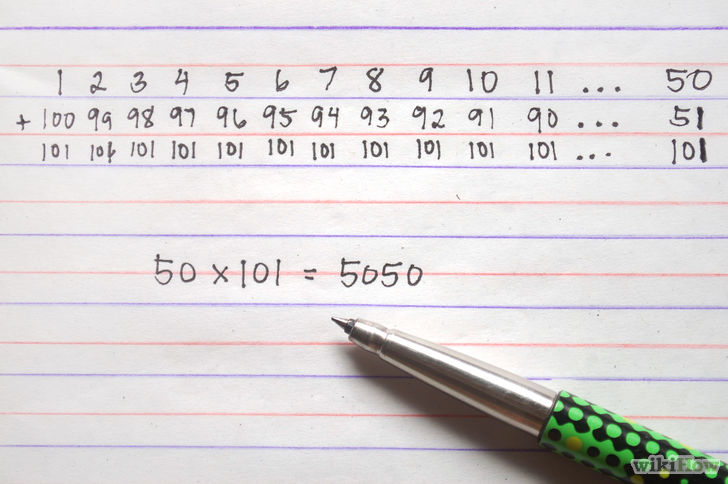 1 2 3 4 5 6 7 8 9 10 11 ... 50
+ 100 99 98 97 96 95 94 93 92 91 90 ... 51
101 101 101 101 101 101 101 101 101 101 101 ... 101
50 × 101 = 5050
wikiHow